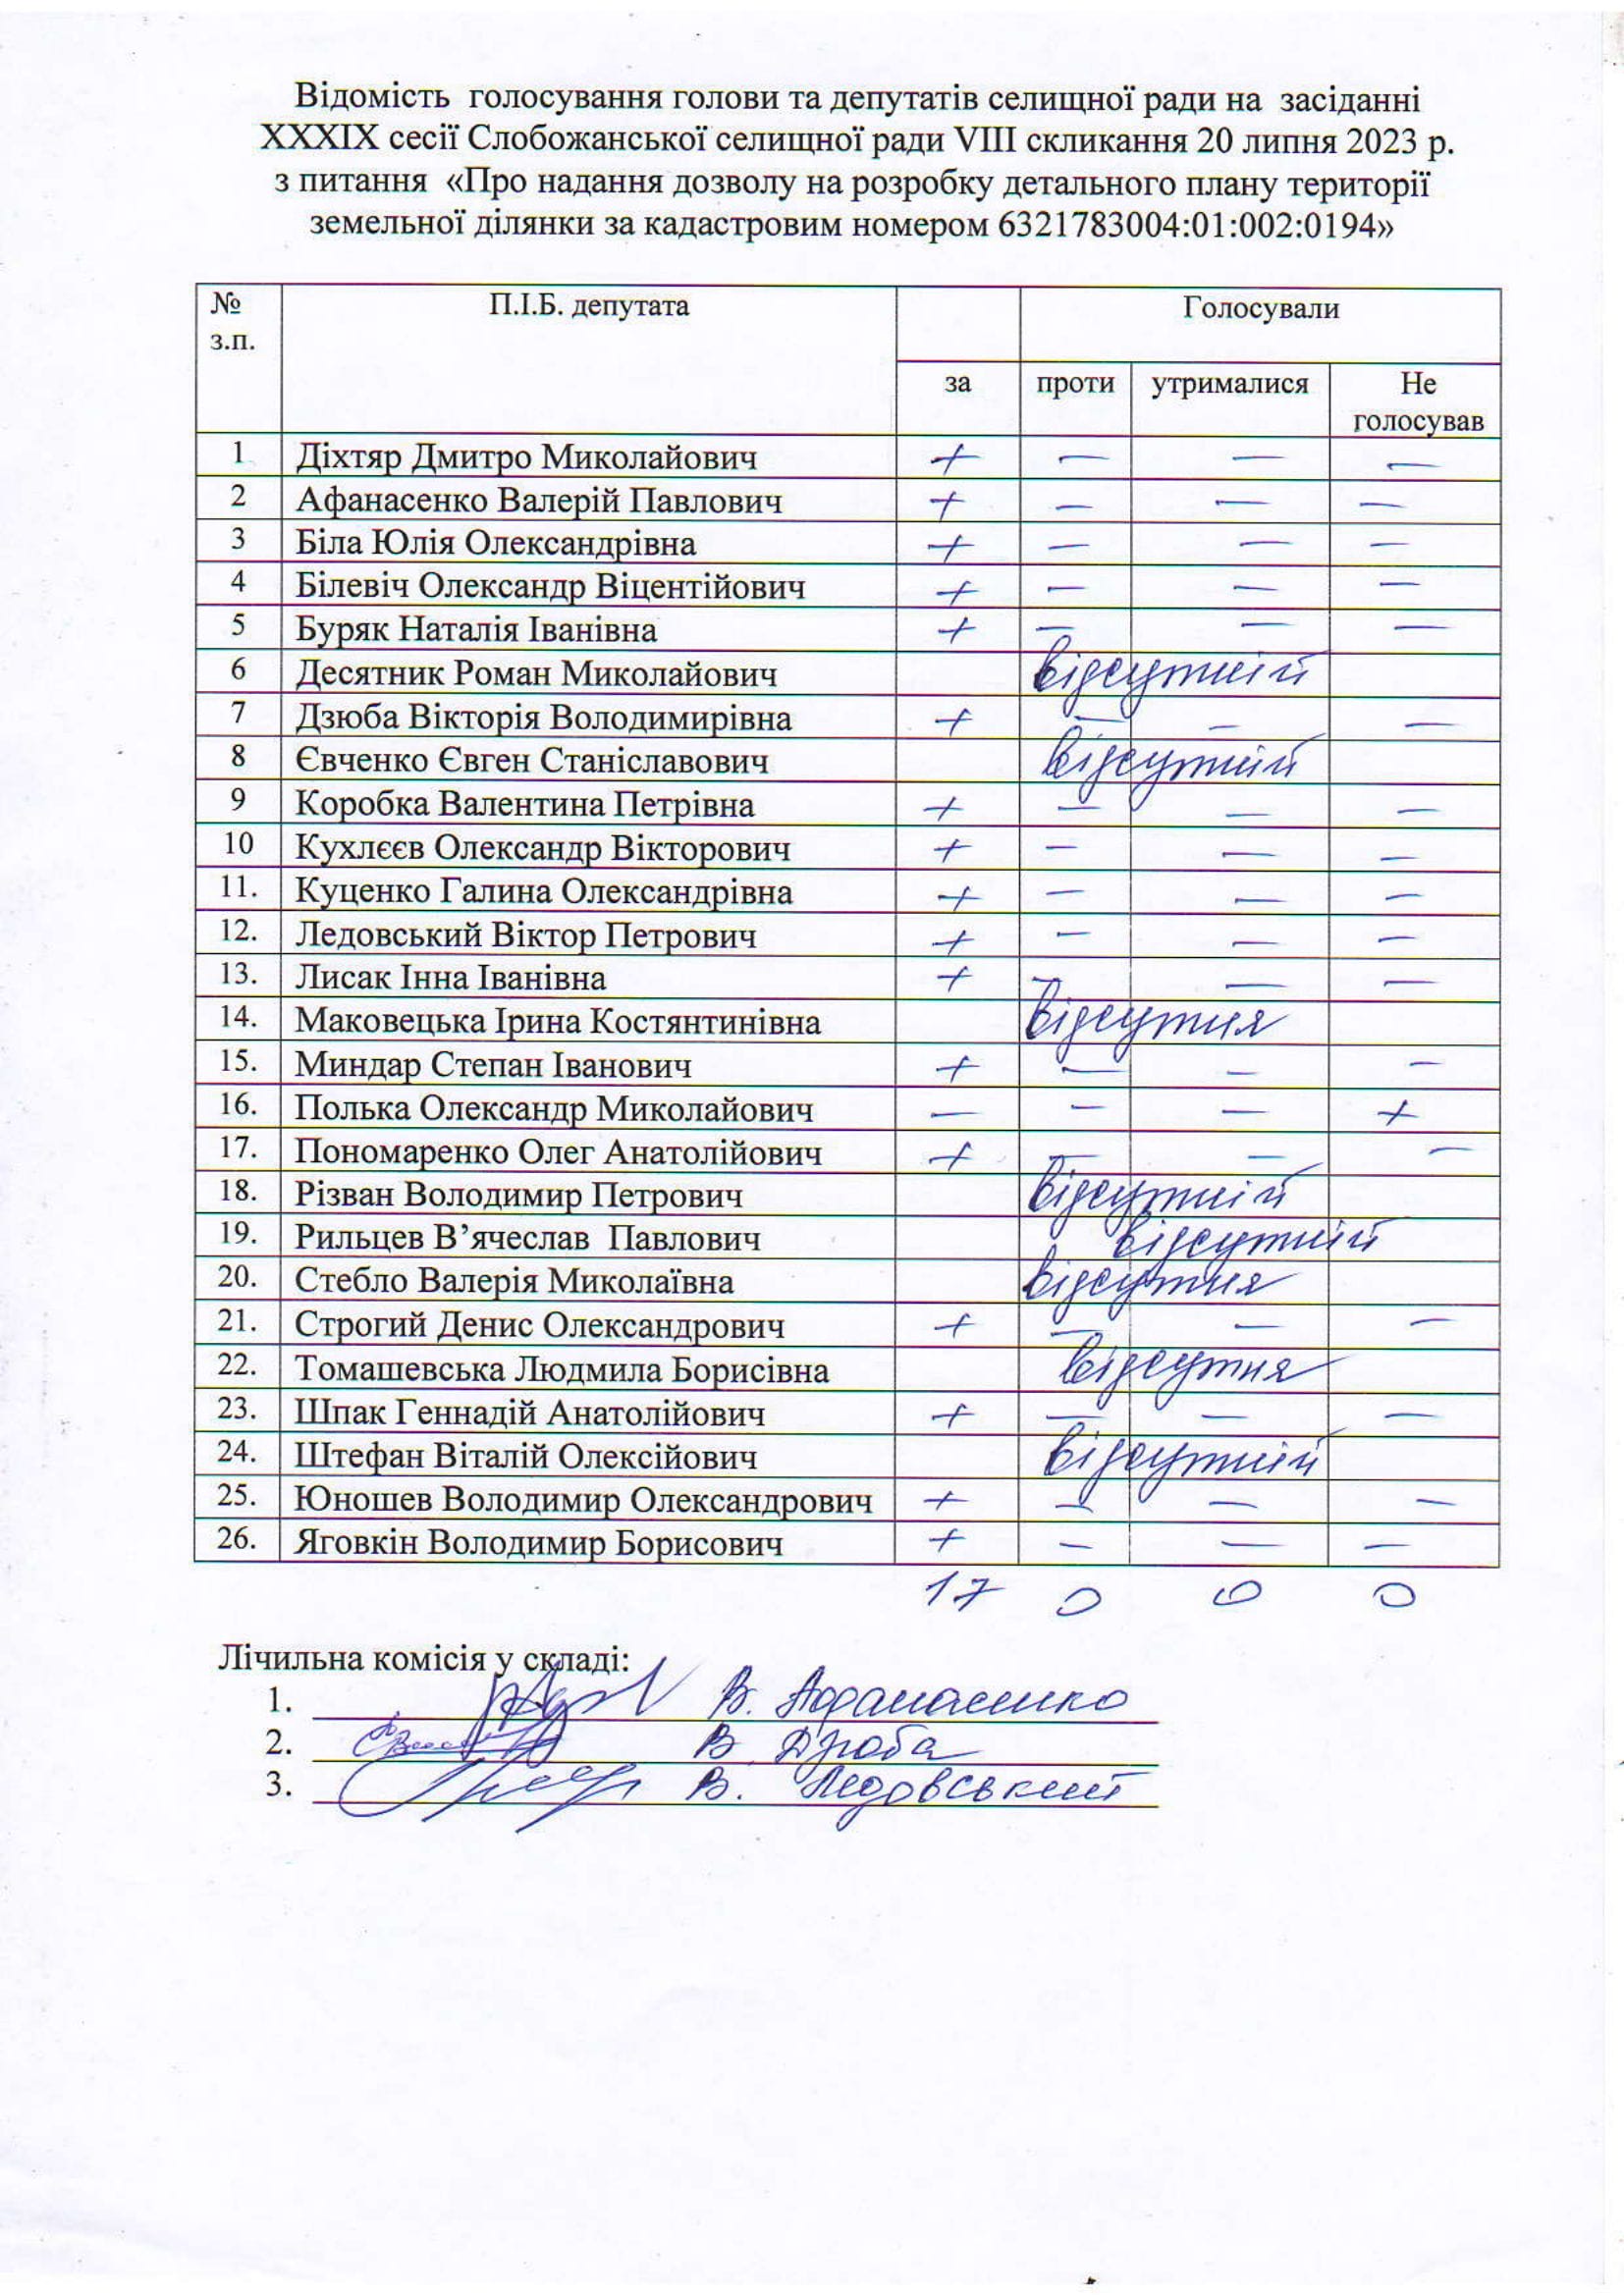 Відомість голосування голови та депутатів селищної ради на засіданні
XXXIX сесії Слобожанської селищної ради VIII скликання 20 липня 2023 р.
з питання «Про надання дозволу на розробку детального плану території
земельної ділянки за кадастровим номером 6321783004:01:002:0194»
№ з.п. П.І.Б. депутата Голосували
за проти утрималися Не голосував
1 Діхтяр Дмитро Миколайович + — — —
2 Афанасенко Валерій Павлович + — — —
3 Біла Юлія Олександрівна + — — —
4 Білевіч Олександр Віцентійович + — — —
5 Буряк Наталія Іванівна + — — —
6 Десятник Роман Миколайович відсутній
7 Дзюба Вікторія Володимирівна + — — —
8 Євченко Євген Станіславович відсутній
9 Коробка Валентина Петрівна + — — —
10 Кухлєєв Олександр Вікторович + — — —
11. Куценко Галина Олександрівна + — — —
12. Ледовський Віктор Петрович + — — —
13. Лисак Інна Іванівна + — — —
14. Маковецька Ірина Костянтинівна відсутня
15. Миндар Степан Іванович + — — —
16. Полька Олександр Миколайович — — — +
17. Пономаренко Олег Анатолійович + — — —
18. Різван Володимир Петрович відсутній
19. Рильцев В’ячеслав Павлович відсутній
20. Стебло Валерія Миколаївна відсутня
21. Строгий Денис Олександрович + — — —
22. Томашевська Людмила Борисівна відсутня
23. Шпак Геннадій Анатолійович + — — —
24. Штефан Віталій Олексійович відсутній
25. Юношев Володимир Олександрович + — — —
26. Яговкін Володимир Борисович + — — —
17 0 0 0
Лічильна комісія у складі:
1. В. Афанасенко
2. В. Дзюба
3. В. Ледовський